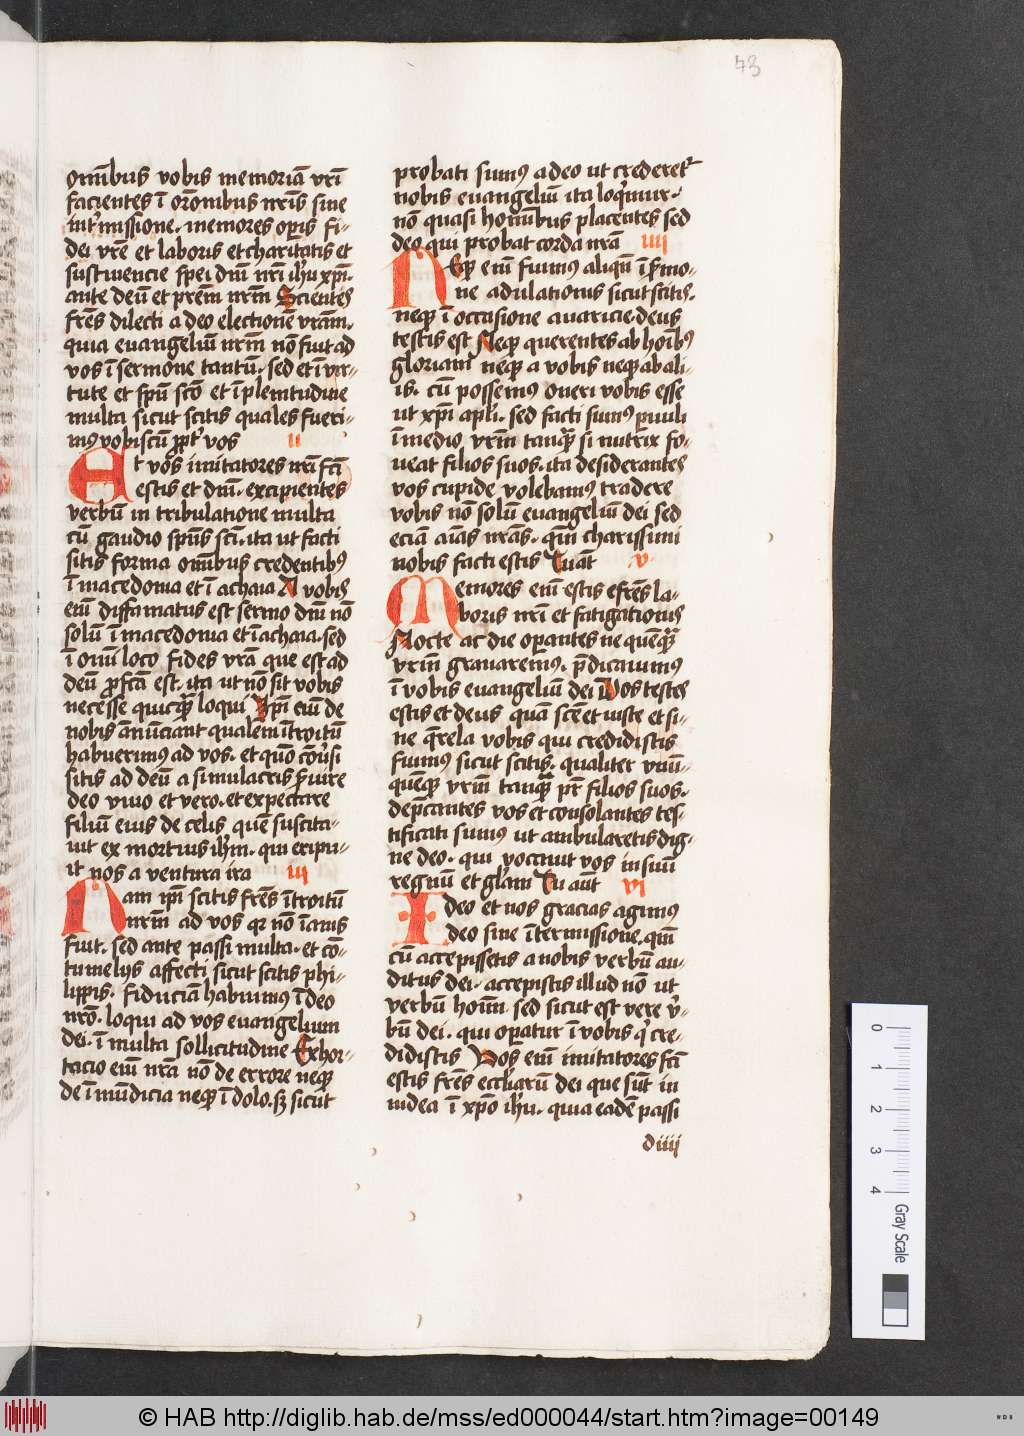 73
om̄ibus vobis memoriā vr̄i
facientes ī or̄onibus nr̄is sine
int'missione. memores op̄is fi-
dei vr̄e et laboris et charitatis et
sustinencie spei dn̄i nr̄i ih'u xp̄i.
ante deū et pr̄em nr̄m Scientes
fr̄es dilecti a deo electionē vr̄am.
quia euangeliū nr̄m nō fuit ad
vos ī sermone tantū. sed et ī vir-
tute et sp̄u sc̄o et ī plenitudine
multa sicut scitis quales fueri-
mꝰ vobiscū ꝓpt' vos ii
Et vos imitatores nr̄i fc̄i
estis et dn̄i. excipientes
verbū in tribulatione multa
cū gaudio sp̄us sc̄i. ita ut facti
sitis forma om̄ibus credentibꝰ
ī macedonia et ī achaia A vobis
em̄ diffamatus est sermo dn̄i nō
solū ī macedonia et ī achaia. sed
ī om̄i loco fides vr̄a que est ad
deū ꝓfc̄a est. ita ut nō sit vobis
necesse quicq̄ loqui Ip̄i em̄ de
nobis an̄nūciant qualem ītroitū
habuerimus ad vos. et quō cōu'si
sitis ad deū a simulacris s'uire
deo viuo et vero. et expectare
filiū eius de celis quē suscita-
uit ex mortuis ih'm. qui eripu-
it nos a ventura ira iii
Nam ip̄i scitis fr̄es ītroitū
nr̄m ad vos qꝛ nō īanis
fuit. sed ante passi multa. et cō-
tumelijs affecti sicut scitis phi-
lippis. fiduciam habuimus ī deo
nr̄o. loqui ad vos euangelium
dei. ī multa sollicitudine Exhor-
tacio em̄ nr̄a nō de errore neqꝫ
de īmūdicia neqꝫ ī dolo. sꝫ sicut
probati sumꝰ a deo ut crederet'
nobis euangeliū ita loq'mur.
nō quasi hom̄ibus placentes sed
deo qui probat corda nr̄a iiii
Neqꝫ em̄ fuimus aliqn̄ ī s'mo-
ne adulationis sicut scitis.
neqꝫ ī occasione auaricie. deus
testis est Neqꝫ querentes ab hoīibꝰ
gloriam neqꝫ a vobis neqꝫ ab ali-
is. cū possemꝰ oneri vobis esse
ut xp̄i apl'i. sed facti sumꝰ paruuli
ī medio vr̄m tanq̄ si nutrix fo-
ueat filios suos. ita desiderantes
vos cupide volebamus tradere
vobis nō solū euangeliū dei sed
eciā aīas nr̄as. qm̄ charissimi
nobis facti estis Tu aūt v
Memores em̄ estis o fr̄es la-
boris nr̄i et fatigationis
Nocte ac die operantes ne quēq̄
vr̄m grauaremus. p̄dicauimus
ī vobis euangeliū dei Vos testes
estis et deus quā sc̄e et iuste et si-
ne q̄rela vobis qui credidistis
fuimus sicut scitis. qualiter vnū-
quēqꝫ vr̄m tanq̄ pr̄ filios suos.
dep̄cantes vos et consolantes tes-
tificati sumus ut ambularetis dig-
ne deo. qui vocauit vos in suū
regnū et gl'iam Tu aūt vi
Ideo et nos gracias agimus
deo sine ītermissione. qm̄
cū accepissetis a nobis verbū au-
ditus dei. accepistis illud nō ut
verbū hom̄. sed sicut est vere v'-
bū dei. qui operatur ī vobis q' cre-
didistis Vos em̄ imitatores fc̄i
estis fr̄es eccl'iarū dei que sūt in
iudea ī xp̄o ih'u. quia eadē passi
diiij
0 1 2 3 4 Gray Scale
© HAB http://diglib.hab.de/mss/ed000044/start.htm?image=00149